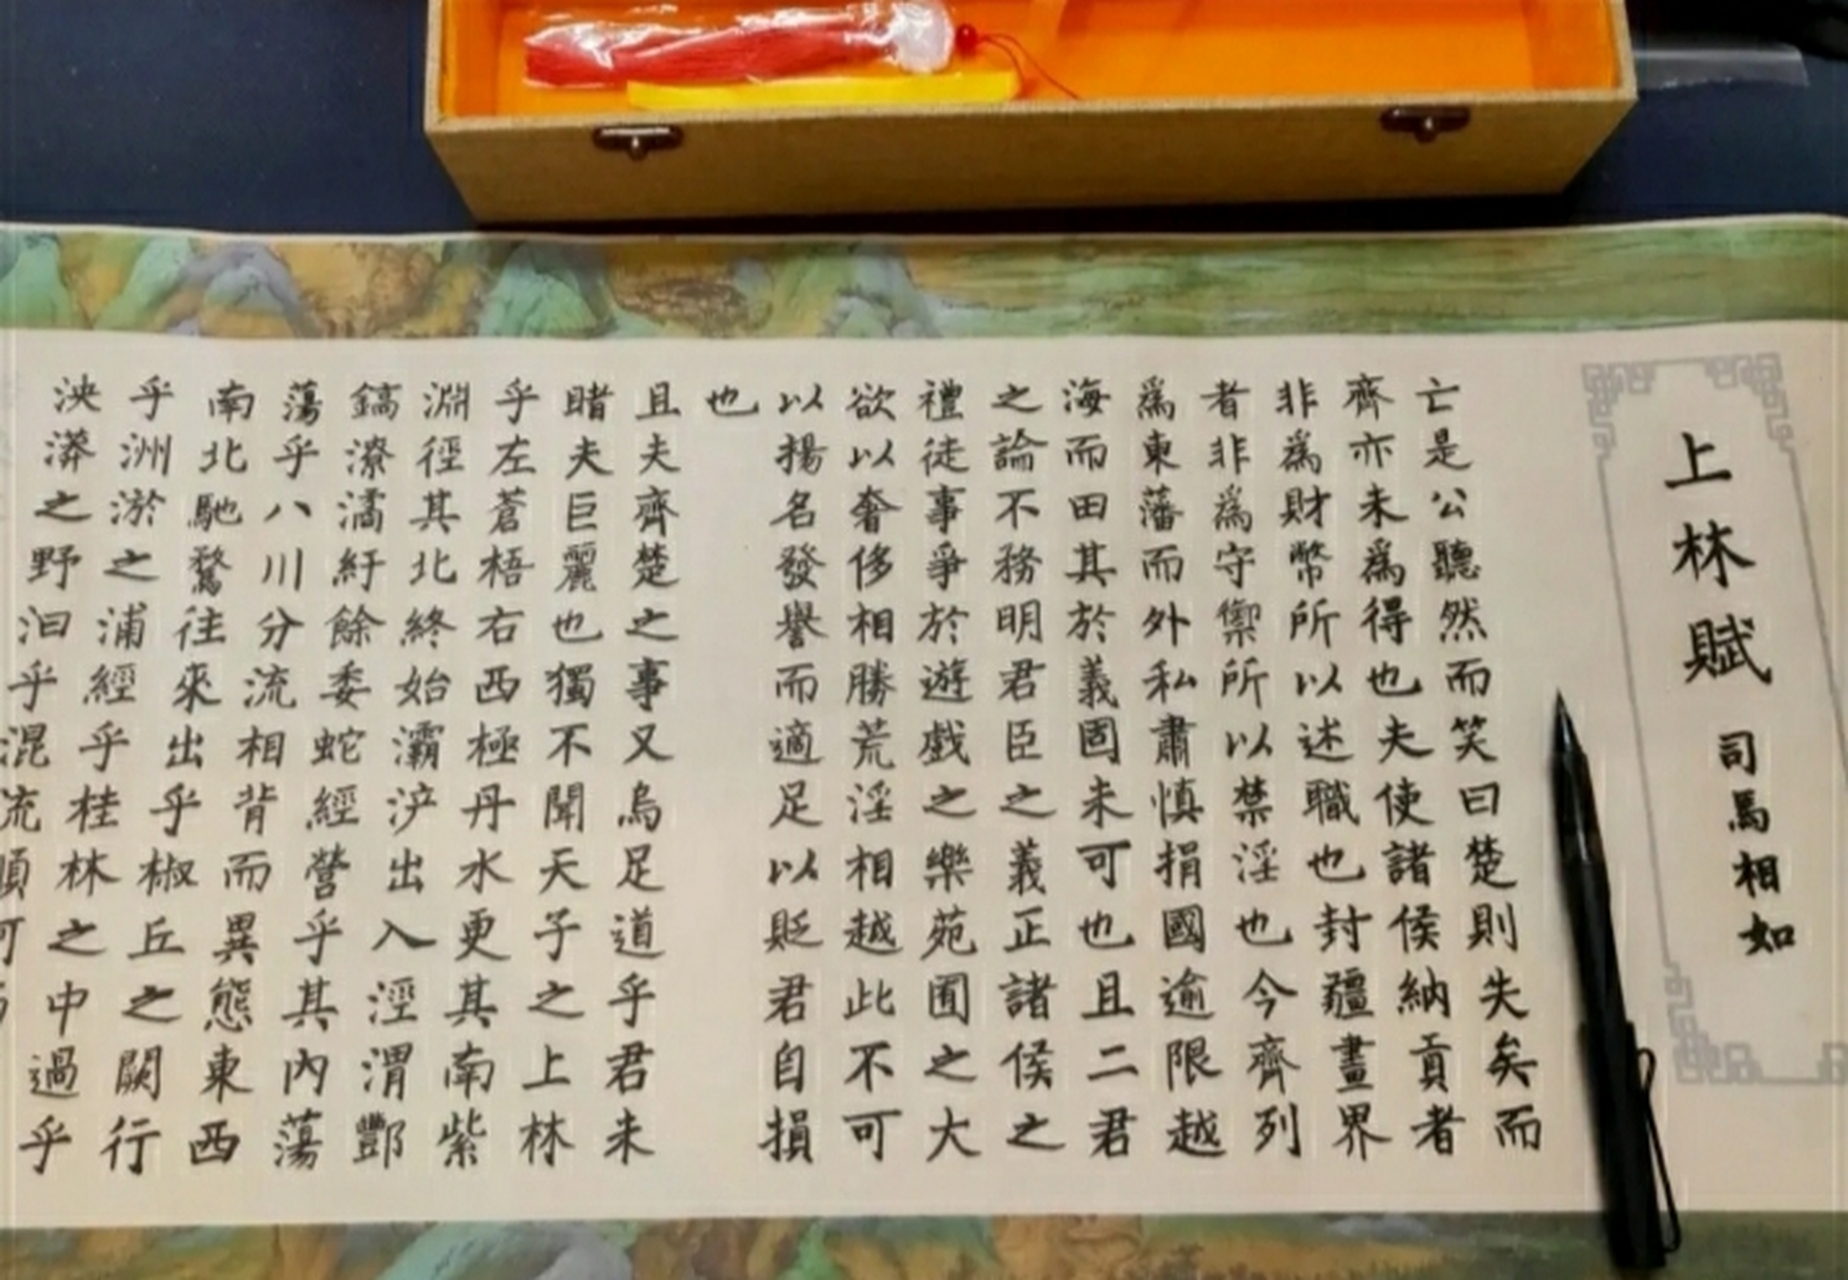 上林賦
司馬相如
亡是公聽然而笑曰楚則失矣而
齊亦未爲得也夫使諸侯納貢者
非爲財幣所以述職也封疆畫界
者非爲守禦所以禁淫也今齊列
爲東藩而外私肅慎捐國逾限越
海而田其於義固未可也且二君
之論不務明君臣之義正諸侯之
禮徒事爭於遊戲之樂苑囿之大
欲以奢侈相勝荒淫相越此不可
以揚名發譽而適足以貶君自損
也
且夫齊楚之事又烏足道乎君未
睹夫巨麗也獨不聞天子之上林
乎左蒼梧右西極丹水更其南紫
淵徑其北終始灞浐出入涇渭酆
鎬潦潏紆餘委蛇經營乎其內蕩
蕩乎八川分流相背而異態東西
南北馳騖往來出乎椒丘之闕行
乎洲淤之浦經乎桂林之中過乎
泱漭之野汩乎混流順